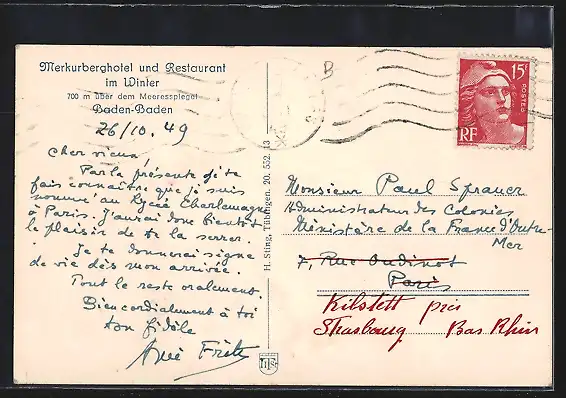 Merkurberghotel und Restaurant
im Winter
700 m über dem Meeresspiegel
Baden-Baden
26/10.49
Cher vieux,
Par la présente je te
fais connaître que je suis
nommé au Lycée Charlemagne
à Paris. J'aurai donc bientôt
le plaisir de te la serrer.
Je te donnerai signe
de vie dès mon arrivée.
Tout le reste oralement.
Bien cordialement à toi
ton fidèle
H. Sting, Tübingen, 20. 552. 13
B
15F
POSTES
RF
Monsieur Paul
Administrateur des Colonies
Ministère de la France d'Outre-
Mer
7, Rue Oudinot
Paris
Kilstett près
Strasbourg Bas Rhin